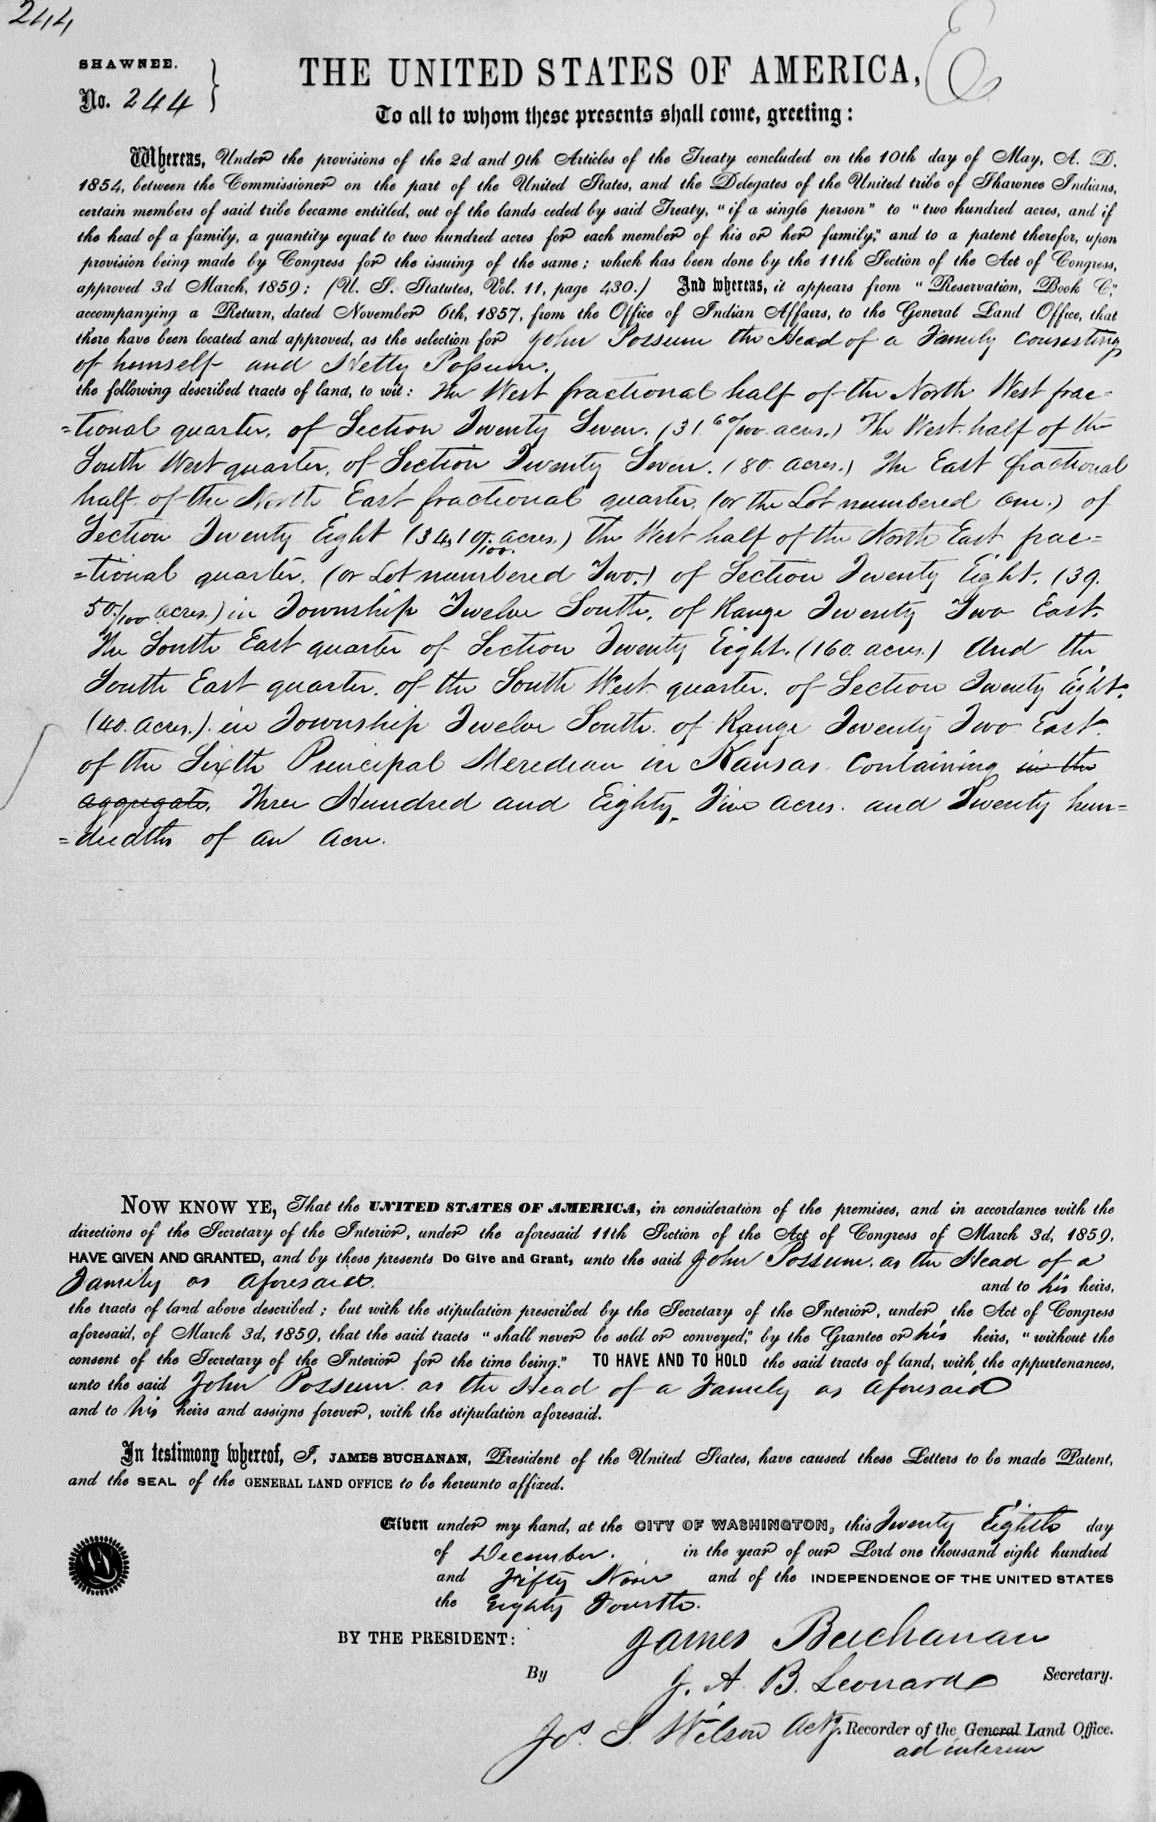 244
SHAWNEE.
No. 244
THE UNITED STATES OF AMERICA,
To all to whom these presents shall come, greeting:
Whereas, Under the provisions of the 2d and 9th Articles of the Treaty concluded on the 10th day of May, A. D.
1854, between the Commissioner on the part of the United States, and the Delegates of the United tribe of Shawnee Indians,
certain members of said tribe became entitled, out of the lands ceded by said Treaty, "if a single person" to "two hundred acres, and if
the head of a family, a quantity equal to two hundred acres for each member of his or her family," and to a patent therefor, upon
provision being made by Congress for the issuing of the same; which has been done by the 11th Section of the Act of Congress,
approved 3d March, 1859; (U. S. Statutes, Vol. 11, page 430.) And whereas, it appears from "Reservation, Book C,"
accompanying a Return, dated November 6th, 1857, from the Office of Indian Affairs, to the General Land Office, that
there have been located and approved, as the selection for John Possum the Head of a Family consisting
of himself and Netty Possum.
the following described tracts of land, to wit: The West fractional half of the North West frac=
=tional quarter, of Section Twenty Seven. (31. 6/100 acres.) The West half of the
South West quarter, of Section Twenty Seven. (80. acres.) The East fractional
half of the North East fractional quarter, (or the Lot numbered One.) of
Section Twenty Eight (34,10/100 acres.) The West half of the North East frac=
=tional quarter. (or Lot numbered Two.) of Section Twenty Eight. (39.
50/100 acres.) in Township Twelve South, of Range Twenty Two East.
The South East quarter of Section Twenty Eight. (160. acres.) And the
South East quarter. of the South West quarter. of Section Twenty Eight.
(40. acres.) in Township Twelve South. of Range Twenty Two East.
of the Sixth Principal Meredian in Kansas. Containing in the
aggregate, Three Hundred and Eighty Five acres. and Twenty hun=
=dredths of an acre.
NOW KNOW YE, That the UNITED STATES OF AMERICA, in consideration of the premises, and in accordance with the
directions of the Secretary of the Interior, under the aforesaid 11th Section of the Act of Congress of March 3d, 1859,
HAVE GIVEN AND GRANTED, and by these presents Do Give and Grant, unto the said John Possum. as the Head of a
Family as aforesaid and to his heirs,
the tracts of land above described; but with the stipulation prescribed by the Secretary of the Interior, under the Act of Congress
aforesaid, of March 3d, 1859, that the said tracts "shall never be sold or conveyed," by the Grantee or his heirs, "without the
consent of the Secretary of the Interior for the time being." TO HAVE AND TO HOLD the said tracts of land, with the appurtenances,
unto the said John Possum. as the Head of a Family as aforesaid
and to his heirs and assigns forever, with the stipulation aforesaid.
In testimony whereof, I, JAMES BUCHANAN, President of the United States, have caused these Letters to be made Patent,
and the SEAL of the GENERAL LAND OFFICE to be hereunto affixed.
Given under my hand, at the CITY OF WASHINGTON, this Twenty Eighth day
of December. in the year of our Lord one thousand eight hundred
and Fifty Nine and of the INDEPENDENCE OF THE UNITED STATES
the Eighty Fourth.
BY THE PRESIDENT: James Buchanan
By J. A. B. Leonard Secretary.
Jos. S. Wilson Actg. Recorder of the General Land Office.
ad interim